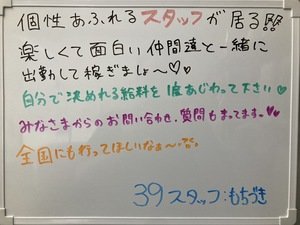 個性あふれるスタッフが居る!!
楽しくて面白い仲間達と一緒に
出勤して稼ぎましょ～♡♡
自分で決めれる給料を味あじわって下さい♡
みなさまからのお問い合わせ、質問もまってますっ♡
全国にも行ってほしいなぁ〜
39スタッフ:もちづき